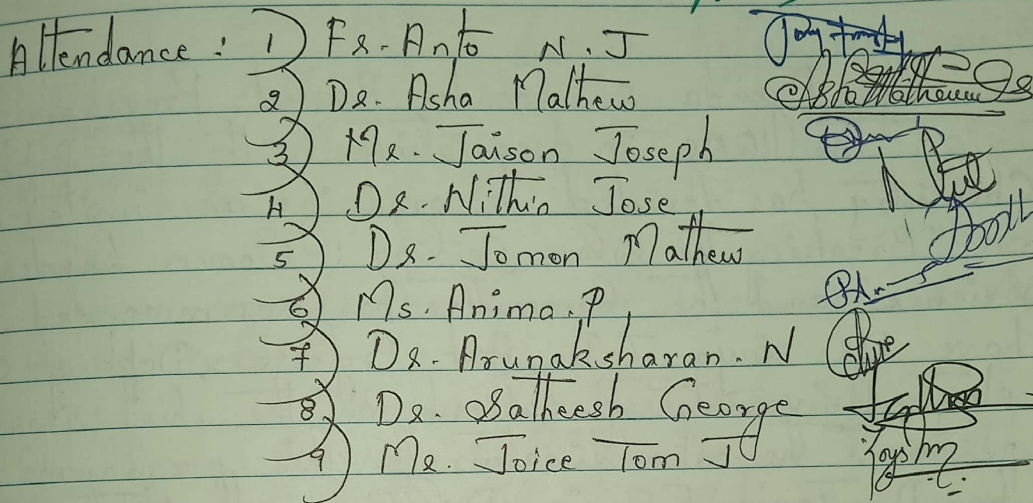 Attendance : 1) Fr. Anto N. J
2) Dr. Asha Mathew AshaMathew
3) Mr. Jaison Joseph
4) Dr. Nithin Jose
5) Dr. Jomon Mathew
6) Ms. Anima. P
7) Dr. Arunaksharan. N
8) Dr. Satheesh George
9) Mr. Joice Tom J